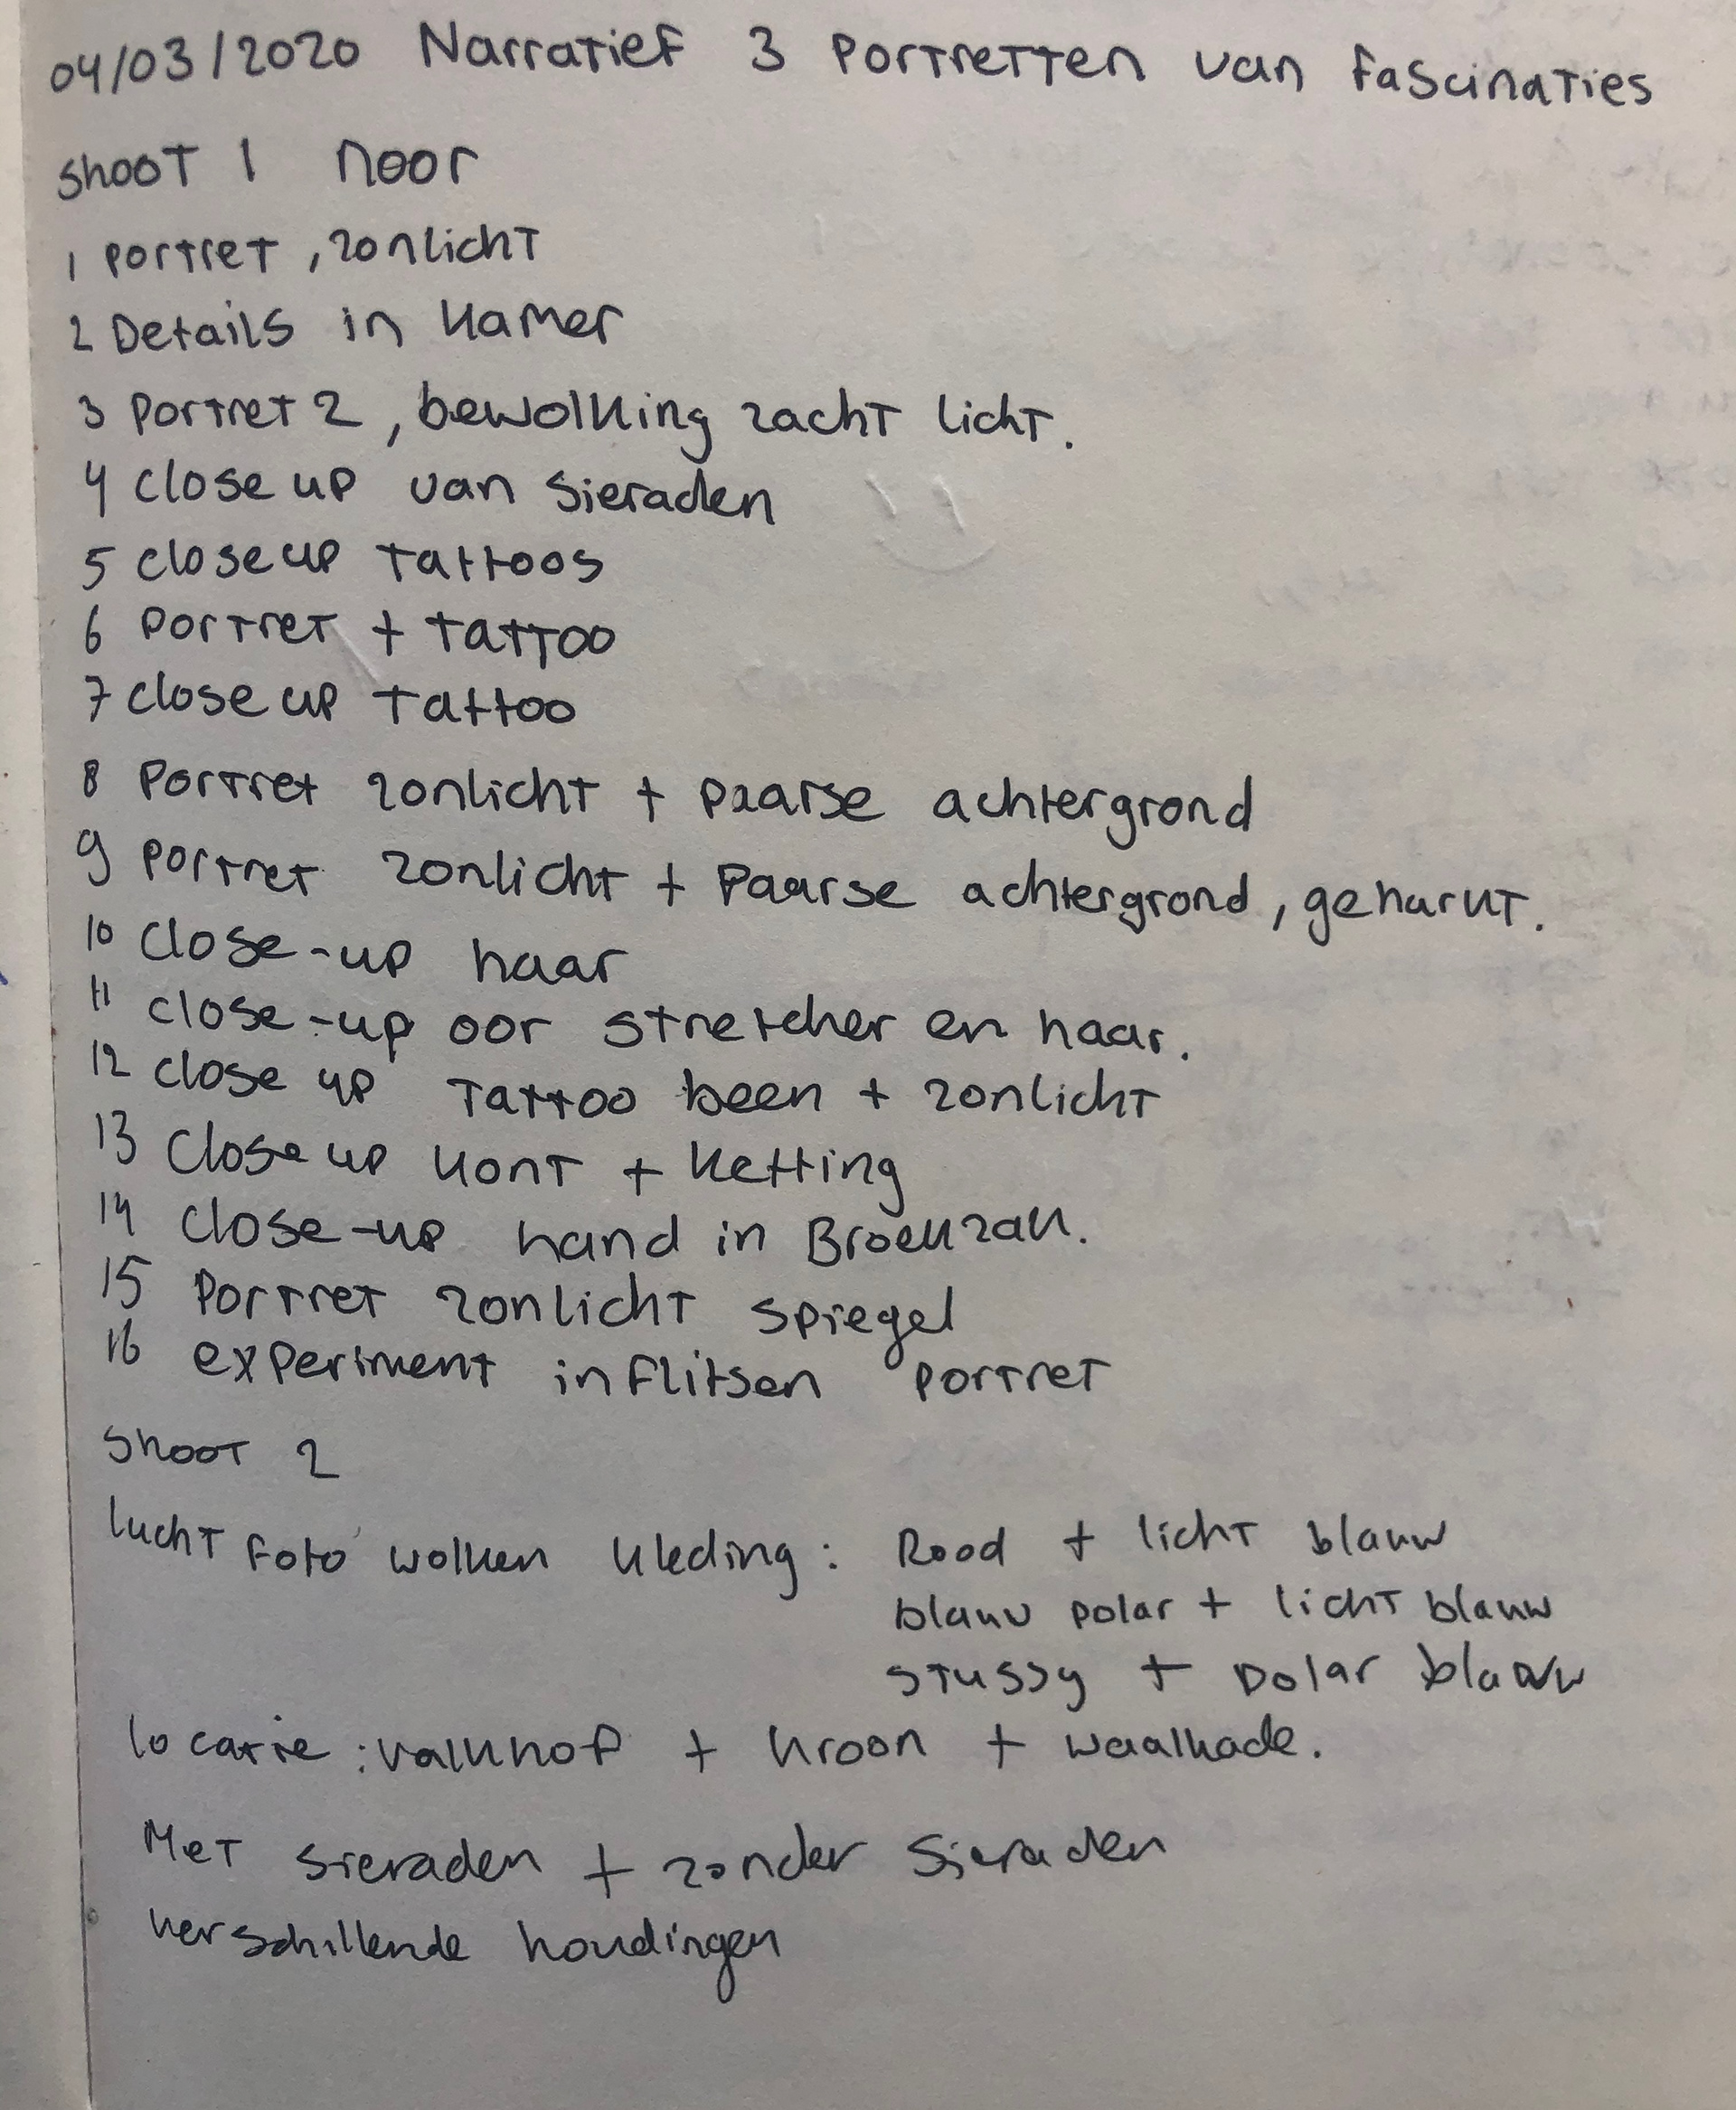 04/03/2020 Narratief 3 Portretten van fascinaties
shoot 1 noor
1 portret , zonlicht
2 Details in kamer
3 Portret 2 , bewolking zacht licht.
4 close up van sieraden
5 close up tattoos
6 Portret + tattoo
7 close up tattoo
8 Portret zonlicht + paarse achtergrond
9 portret zonlicht + Paarse achtergrond, gehurkt.
10 close-up haar
11 close-up oor stretcher en haar.
12 close up tattoo been + zonlicht
13 Close up kont + ketting
14 close-up hand in Broekzak.
15 Portret zonlicht spiegel
16 experiment inflitsen portret
Shoot 2
lucht foto wolken kleding : Rood + licht blauw
blauw polar + licht blauw
stussy + polar blauw
locatie : valkhof + kroon + waalkade.
Met sieraden + zonder sieraden
verschillende houdingen